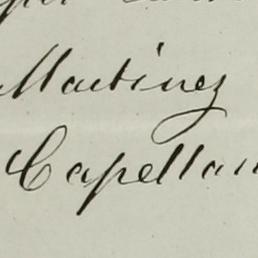 Martinez
Capellan